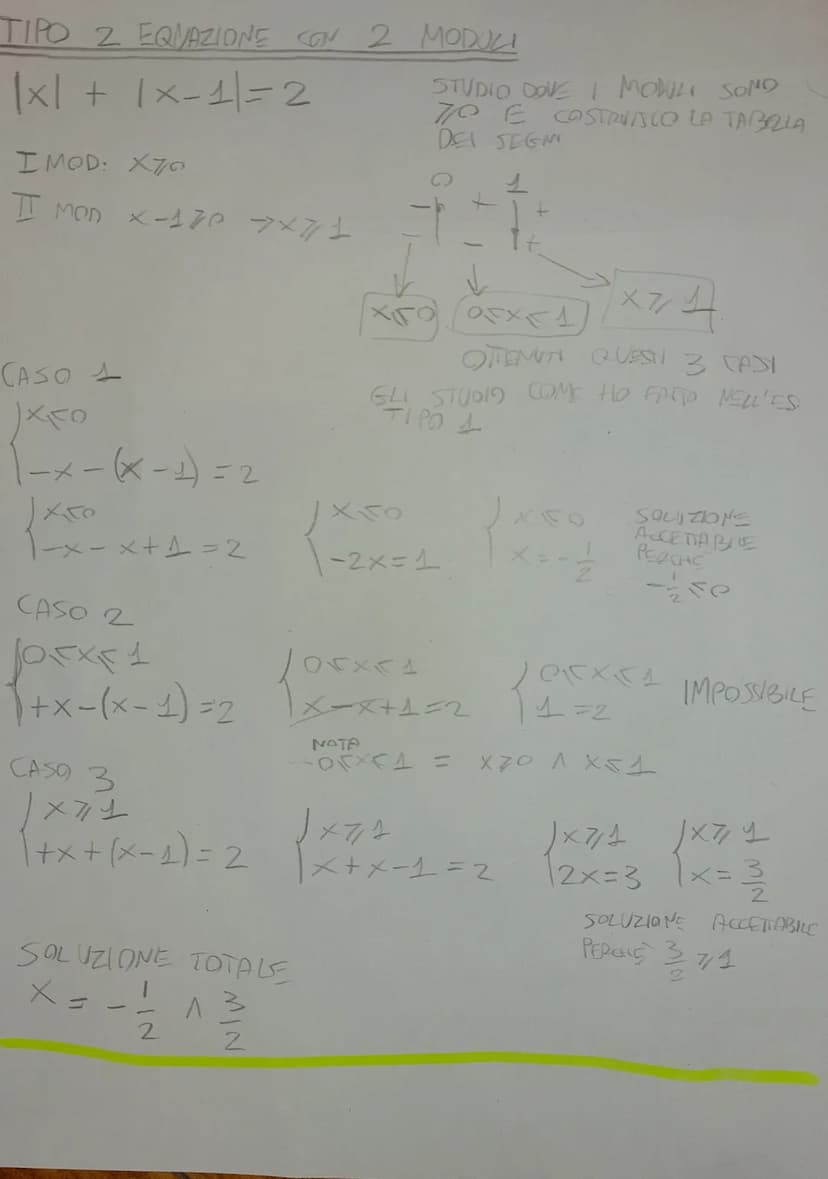 TIPO 2 EQUAZIONE CON 2 MODULI
|x| + |x-1| = 2
STUDIO DOVE I MODULI SONO
⩾0 E COSTRUISCO LA TABELLA
DEI SEGNI
I MOD: x⩾0
II MOD x-1⩾0 → x⩾1
0 1
- + +
- - +
x⩽0 0⩽x⩽1 x⩾1
OTTENUTI QUESTI 3 CASI
GLI STUDIO COME HO FATTO NELL'ES.
TIPO 1
CASO 1
{ x⩽0
-x-(x-1)=2
{ x⩽0 { x⩽0 { x⩽0
-x-x+1=2 -2x=1 x=-1/2
SOLUZIONE
ACCETTABILE
PERCHÈ
-1/2⩽0
CASO 2
{ 0⩽x⩽1 { 0⩽x⩽1 { 0⩽x⩽1 IMPOSSIBILE
+x-(x-1)=2 x-x+1=2 1=2
NOTA
0⩽x⩽1 = x⩾0 ∧ x⩽1
CASO 3
{ x⩾1 { x⩾1 { x⩾1 { x⩾1
+x+(x-1)=2 x+x-1=2 2x=3 x=3/2
SOLUZIONE ACCETTABILE
PERCHÈ 3/2 ⩾1
SOLUZIONE TOTALE
x = -1/2 ∧ 3/2